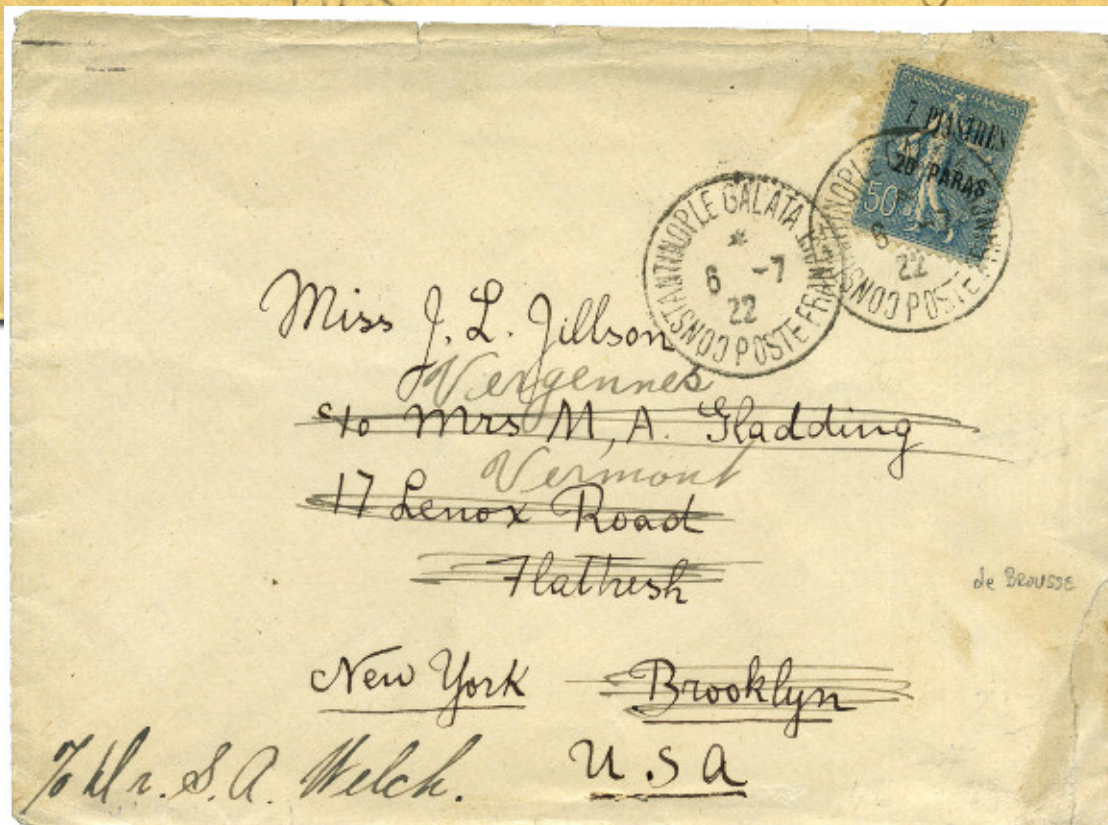 7 PIASTRES
20 PARAS
50
CONSTANTINOPLE GALATA
POSTE FRANÇAISE
*
6 -7
22
CONSTANTINOPLE
POSTE
6 -7
22
Miss J. L. Jillson
Vergennes
c/o Mrs M, A. Gladding
Vermont
17 Lenox Road
Flathesh
de BROUSSE
New York Brooklyn
c/o Mr. S. A. Welch.
U.S.A